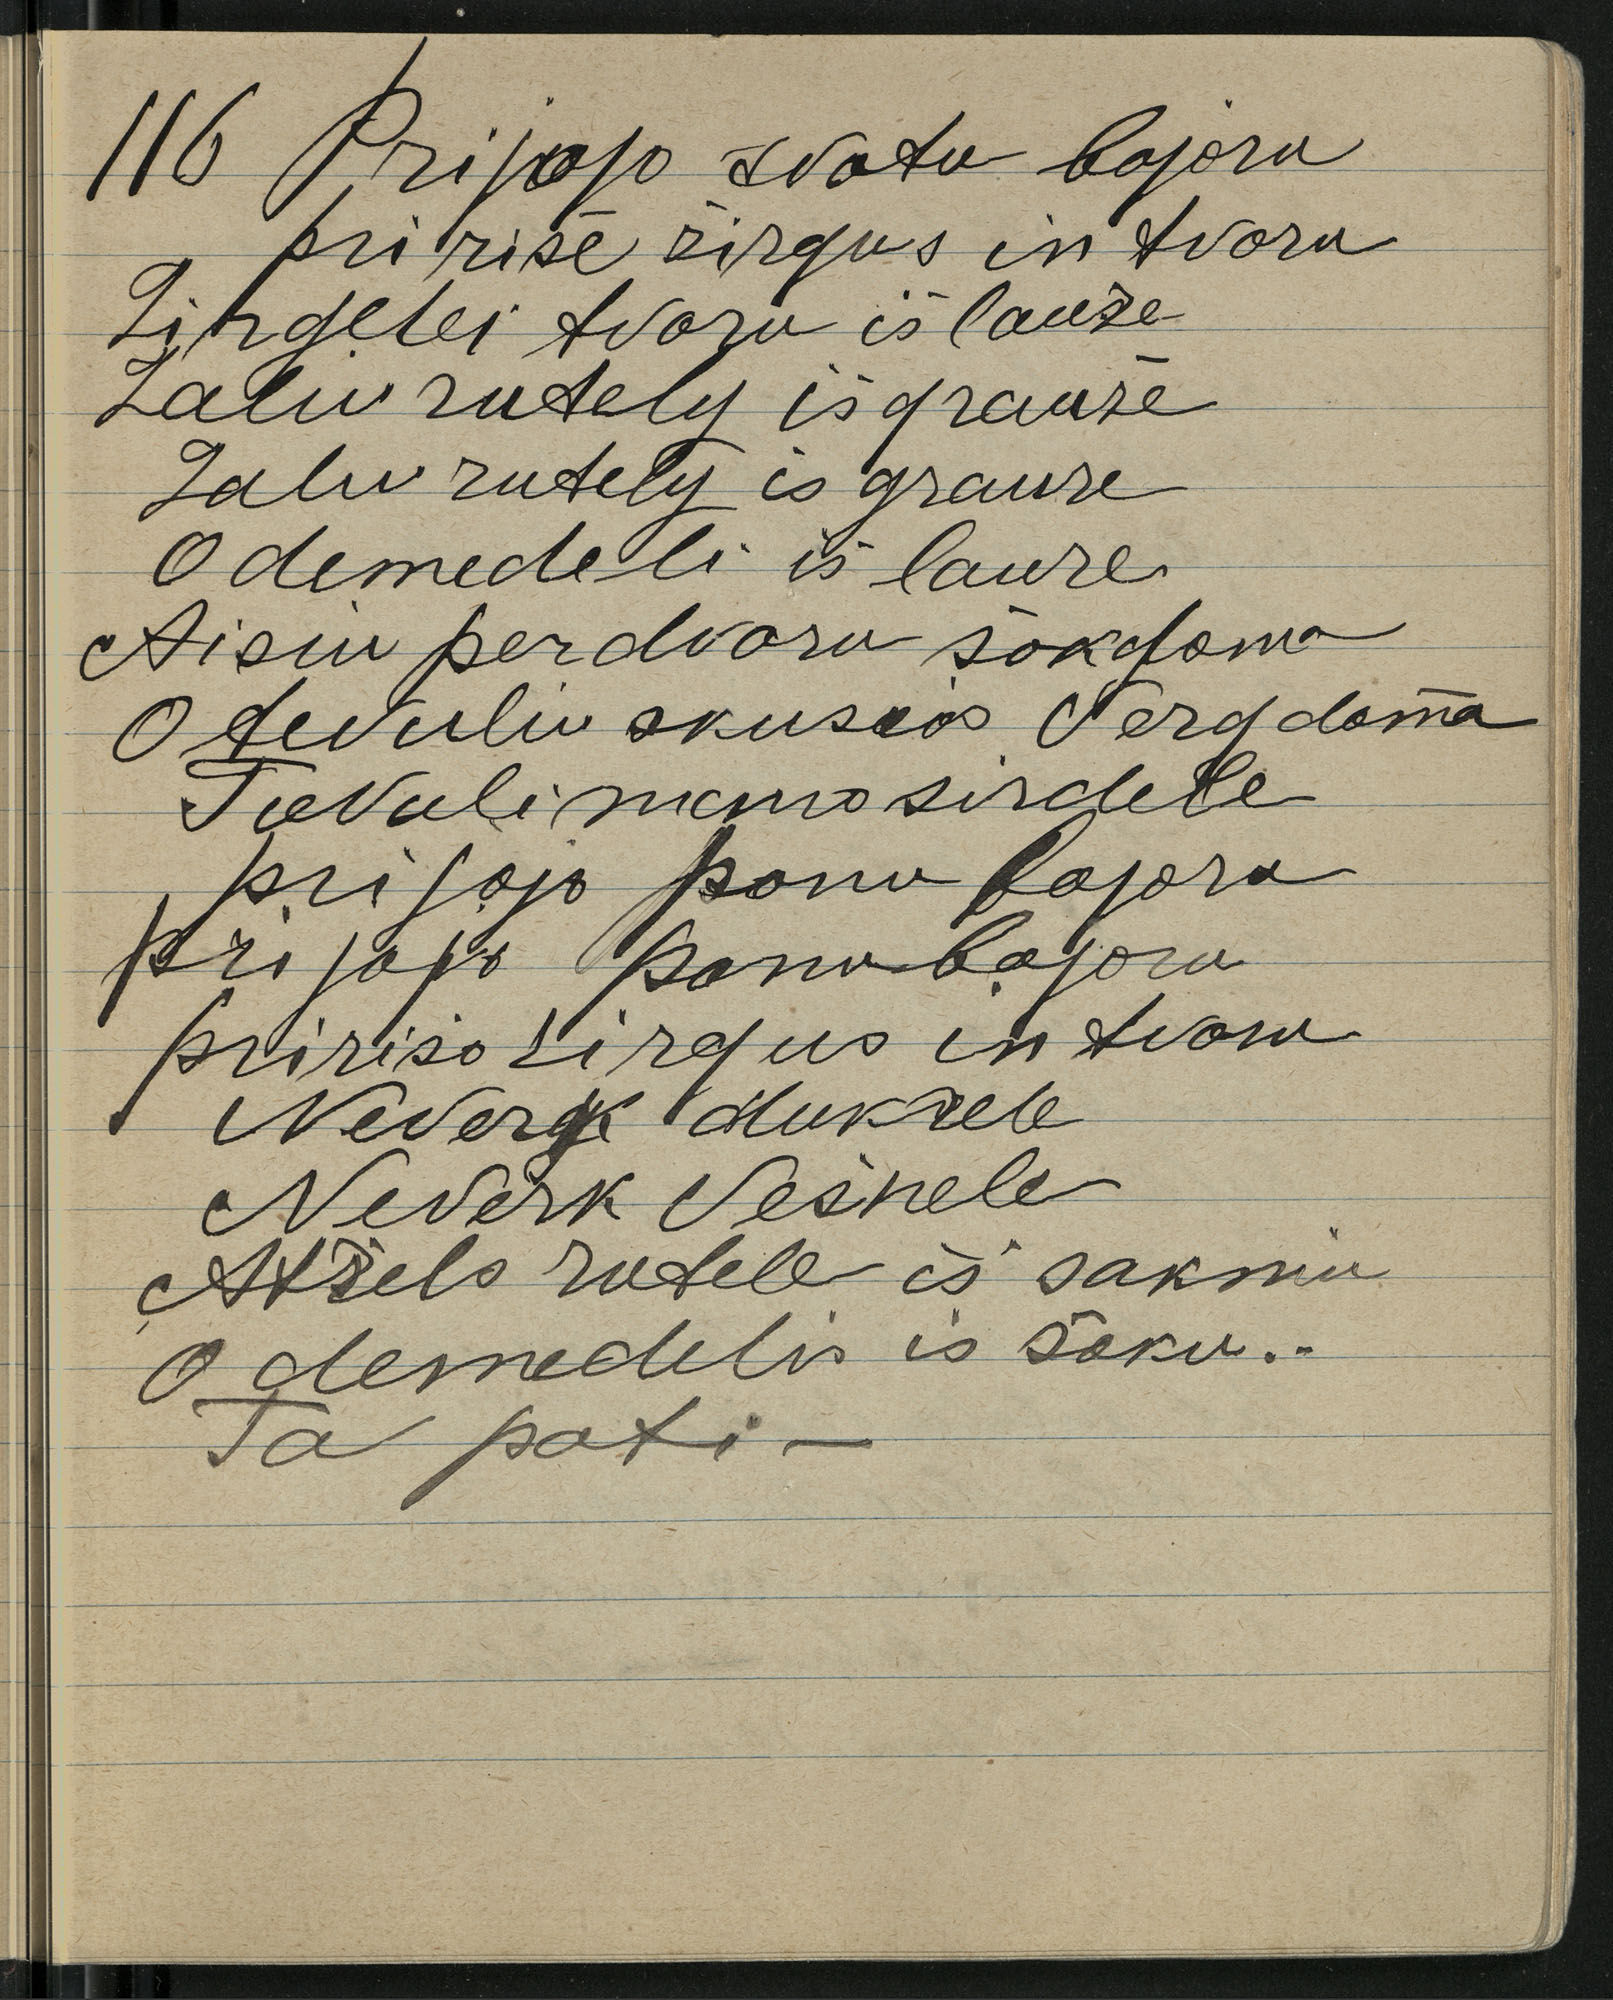 116 Prijojo svotu bajoru
pririšė žirgus in tvoru
Žirgelei tvoru išlaužė
Žaliu rutely išgraužė
Žaliu rutely isgrauže
O demedeli iš lauže
Aisiu per dvoru šokdoma
O tevuliu skusiuos Vergdoma
Tevuli mano sirdele
prijojo ponu bajoru
prijojo ponu bajoru
pririšo žirgus in tvoru
Neverk dukrele
Neverk Vešnele
Atžels rutele iš šakniu
O demedelis is šaku..
Ta pati –